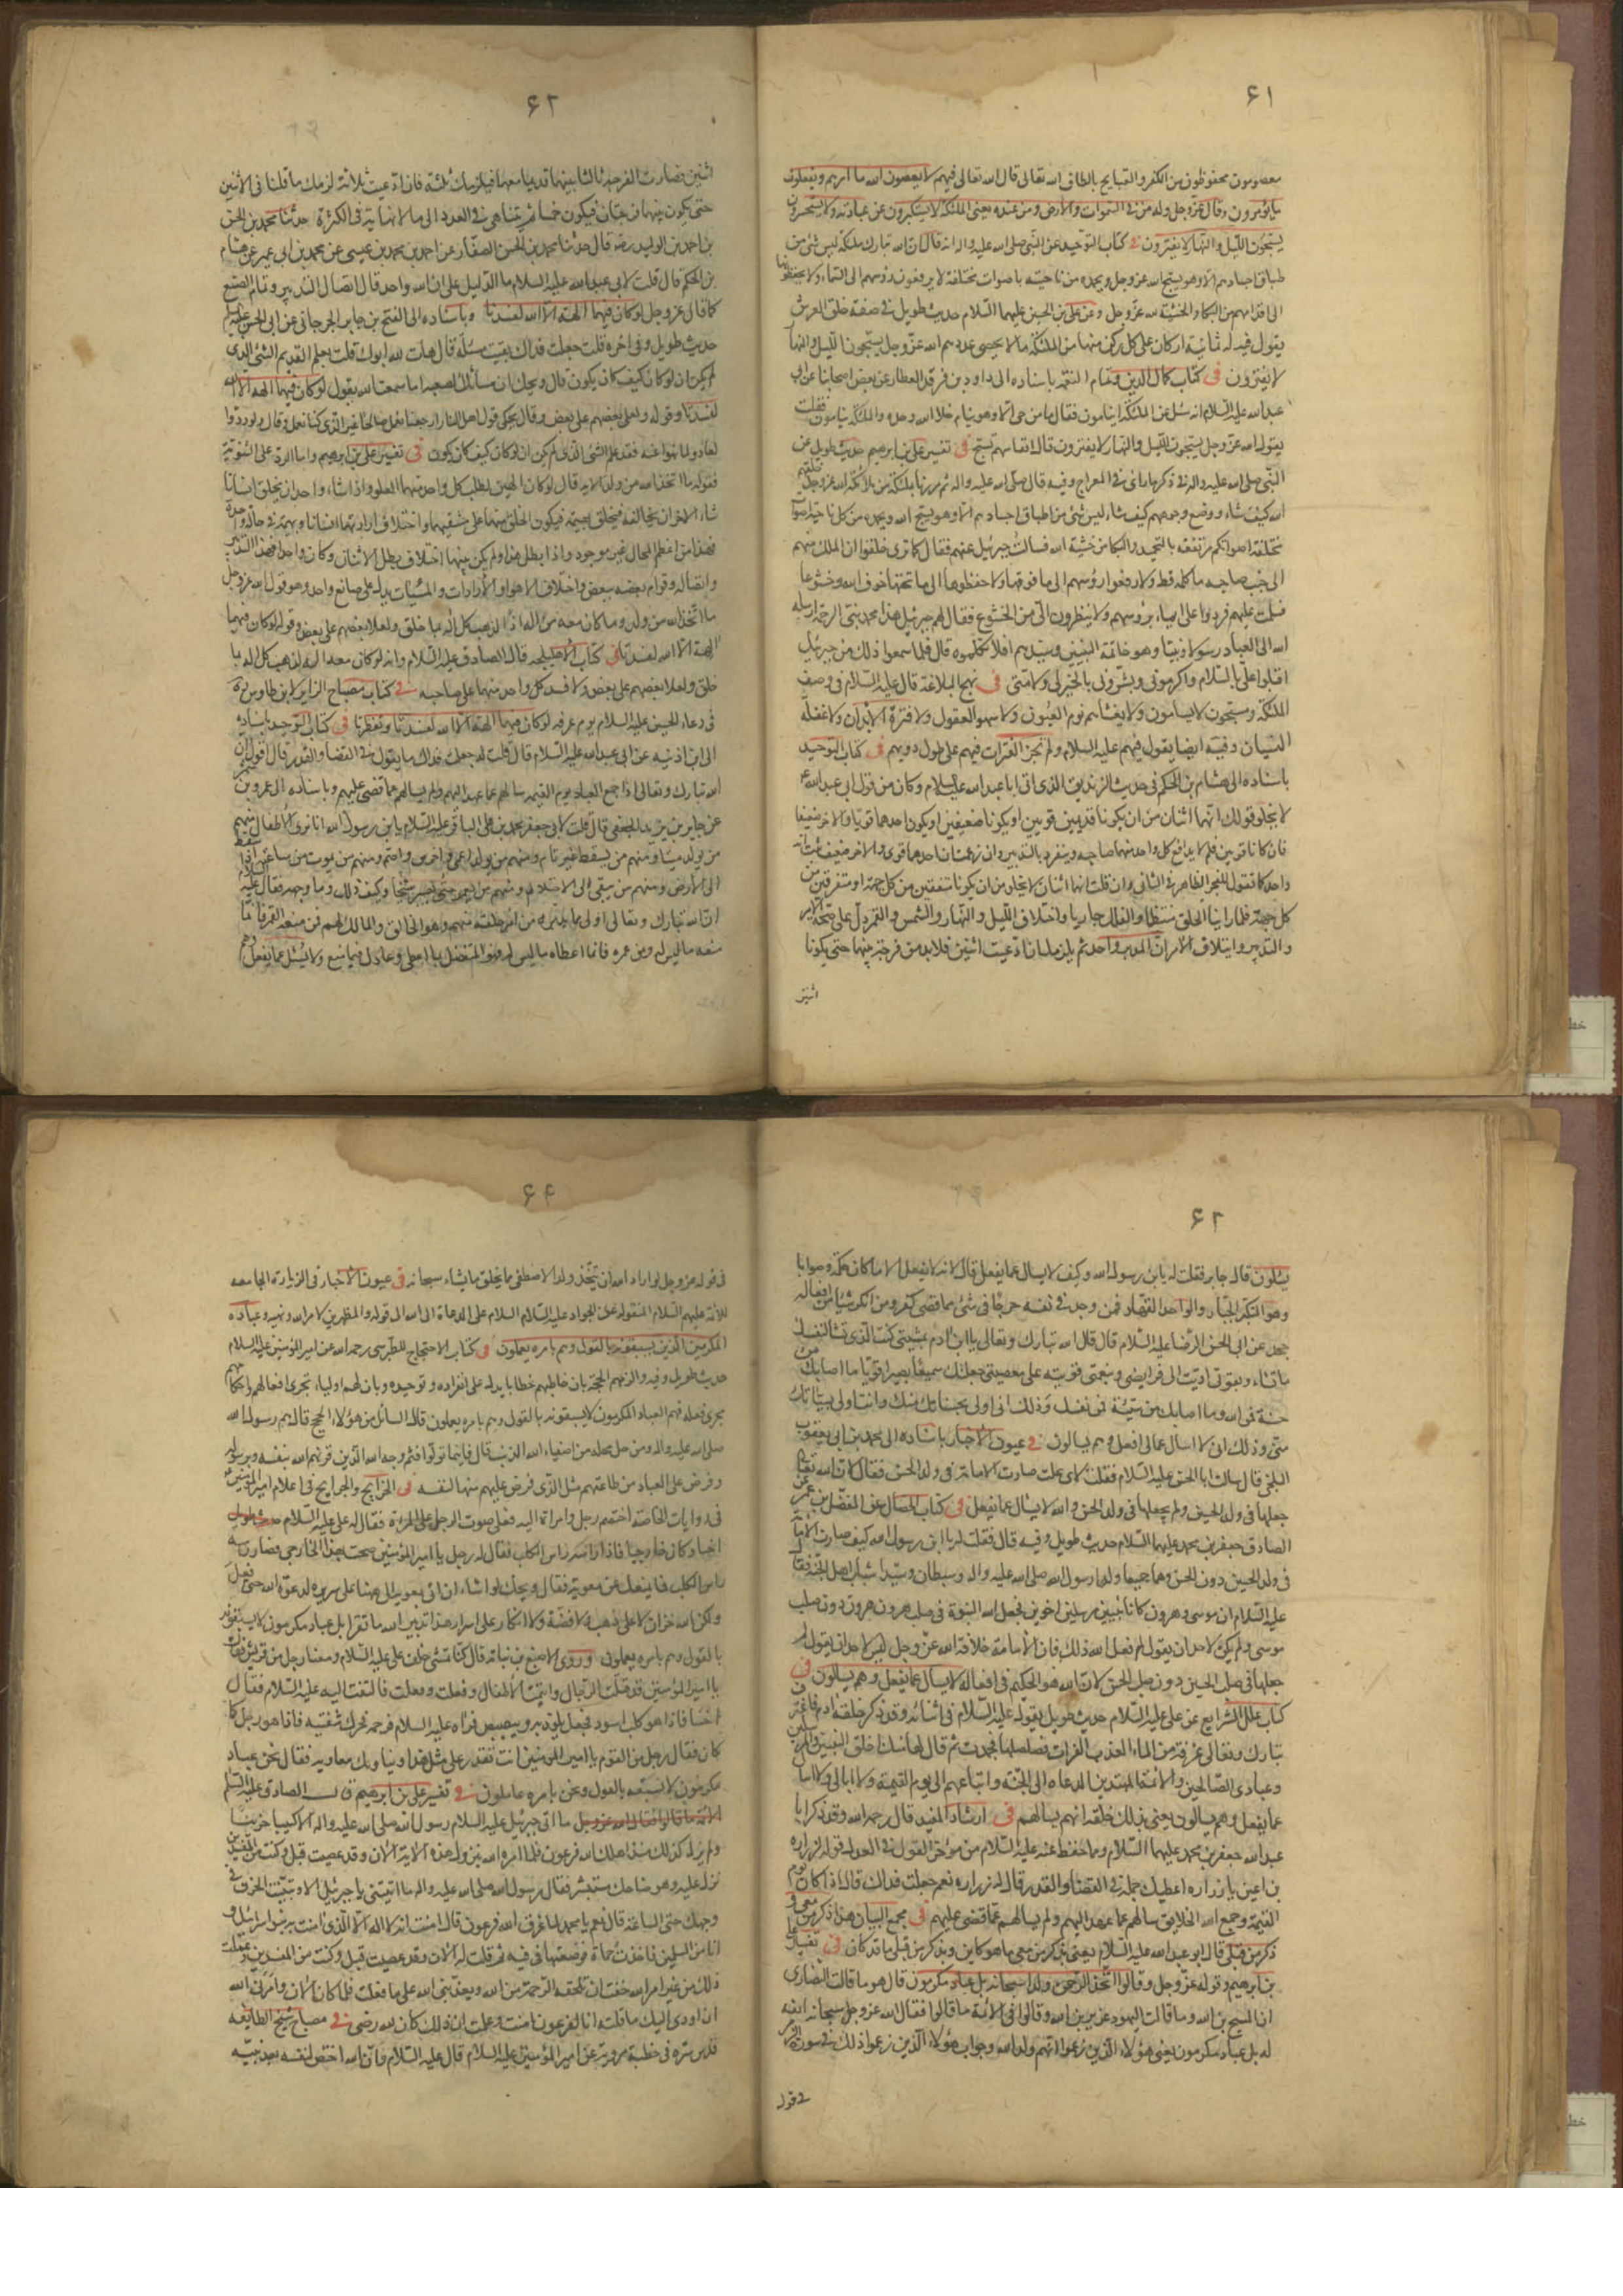 ۶۱
معصومون محفوظون من الكفر والقبايح بالطاف الله تعالى قال الله تعالى فيهم لا يعصون الله ما امرهم ويفعلون
ما يؤمرون وقال عز وجل وله من في السموات والارض ومن عنده يعنى الملئكة لا يستكبرون عن عبادته ولا يستحسرون
يسبحون الليل والنهار لا يفترون في كتاب التوحيد عن النبى صلى الله عليه واله انه قال ان لله تبارك ملئكة ليس شئ من
اطباق اجسادهم الا وهو يسبح الله عز وجل ويحمده من ناحيته باصوات مختلفة لا يرفعون رؤسهم الى السماء ولا يخفظونها
الى اقدامهم من البكاء والخشية لله عز وجل وعن على بن الحسين عليهما السلام حديث طويل في صفة خلق العرش
يقول فيه له ثمانية اركان على كل ركن منها من الملئكة ما لا يحصى عددهم الا الله عز وجل يسبحون الليل والنهار
لا يفترون في كتاب كمال الدين وتمام النعمة باسناده الى داود بن فرقد العطار عن بعض اصحابنا عن ابى
عبد الله عليه السلام انه سئل عن الملئكة اينامون فقال ما من حى الا وهو ينام خلا الله وحده والملئكة ينامون فقلت
يقول الله عز وجل يسبحون الليل والنهار لا يفترون قال انفاسهم تسبيح في تفسير على بن ابرهيم حديث طويل عن
النبى صلى الله عليه واله في ذكر ما رأى في المعراج وفيه قال صلى الله عليه واله ثم مررنا بملئكة من ملائكة الله عز وجل خلقهم
الله كيف شاء ووضع وجوههم كيف شاء ليس شئ من اطباق اجسادهم الا وهو يسبح الله ويحمده من كل ناحية باصوات
مختلفة اصواتهم مرتفعة بالتحميد والبكاء من خشية الله فسالت جبرئيل عنهم فقال كما ترى خلقوا ان الملك منهم
الى جنب صاحبه ما كلمه قط ولا رفعوا رؤسهم الى ما فوقها ولا خفظوها الى ما تحتها خوفا لله وخشوعا
فسلمت عليهم فردوا على ايماء برؤسهم ولا ينظرون الى من الخشوع فقال لهم جبرئيل هذا محمد نبى الرحمة ارسله
الله الى العباد رسولا ونبيا وهو خاتمة النبيين وسيدهم افلا تكلموه قال فلما سمعوا ذلك من جبرئيل
اقبلوا على بالسلام واكرمونى وبشرونى بالخير لى ولامتى في نهج البلاغة قال عليه السلام في وصف
الملئكة ومسبحون لا يسامون ولا يغشاهم نوم العيون ولا سهو العقول ولا فترة الابدان ولا غفلة
النسيان وفيه ايضا يقول فيهم عليه السلام ولم تجز الفترات فيهم على طول دوبهم في كتاب التوحيد
باسناده الى هشام بن الحكم في حديث الزنديق الذى اتى ابا عبد الله عليه السلام وكان من قول ابى عبد الله ع
لا يخلو قولك انهما اثنان من ان يكونا قديمين قويين او يكونا ضعيفين او يكون احدهما قويا والاخر ضعيفا
فان كانا قويين فلم لا يدافع كل واحد منهما صاحبه وينفرد بالتدبير وان زعمت ان احدهما قوى والاخر ضعيف ثبت انه
واحد كما نقول للعجز الظاهر في الثانى وان قلت انهما اثنان لا يخلو من ان يكونا متفقين من كل جهة او متفرقين من
كل جهة فلما راينا الخلق منتظما والفلك جاريا واختلاف الليل والنهار والشمس والقمر دل على صحة الامر
والتدبير وايتلاف الامر ان المدبر واحد ثم يلزمك ان ادعيت اثنين فلا بد من فرجة بينهما حتى يكونا
اثنين
۶۲
اثنين فصارت الفرجة ثالثا بينهما قديما معهما فيلزمك ثلثة فان ادعيت ثلاثة لزمك ما قلنا في الاثنين
حتى يكون بينهما فرجتان فيكون خمسا ثم يتناهى في العدد الى ما لا نهاية في الكثرة حدثنا محمد بن الحسن
بن احمد بن الوليد رضه قال حدثنا محمد بن الحسن الصفار عن احمد بن محمد بن عيسى عن محمد بن ابى عمير عن هشام
بن الحكم قال قلت لابى عبد الله عليه السلام ما الدليل على ان الله واحد قال اتصال التدبير وتمام الصنع
كما قال عز وجل لو كان فيهما الهة الا الله لفسدتا وباسناده الى الفتح بن يزيد الجرجانى عن ابى الحسن عليه السلم
حديث طويل وفي اخره قلت جعلت فداك بقيت مسئلة قال هات لله ابوك قلت يعلم القديم الشئ الذى
لم يكن ان لو كان كيف كان يكون قال ويحك ان مسائلك لصعبة اما سمعت الله يقول لو كان فيهما الهة الا الله
لفسدتا وقوله ولعلى بعضهم على بعض وقال يحكى قول اهل النار ارجعنا نعمل صالحا غير الذى كنا نعمل وقال ولو ردوا
لعادوا لما نهوا عنه فقد علم الشئ الذى لم يكن ان لو كان كيف كان يكون في تفسير على بن ابرهيم واما الرد على الثنوية
فقوله ما اتخذ الله من ولد الاية قال لو كان الهين لطلب كل واحد منهما العلو واذا شاء واحد ان يخلق انسانا
شاء الاخر ان يخالفه فيخلق بهيمة فيكون الخلق منهما على مشيتهما واختلاف ارادتهما انسانا وبهيمة في حالة واحدة
فهذا من اعظم المحال غير موجود واذا بطل هذا ولم يكن بينهما اختلاف بطل الاثنان وكان واحدا فهذا التدبير
واتصاله وقوام بعضه ببعض واختلاف الاهواء والارادات والمشيات يدل على صانع واحد وهو قول الله عز وجل
ما اتخذ الله من ولد وما كان معه من اله اذا لذهب كل اله بما خلق ولعلا بعضهم على بعض وقوله لو كان فيهما
الهة الا الله لفسدتا في كتاب الاهليلجه قال الصادق عليه السلام وانه لو كان معه اله لذهب كل اله بما
خلق ولعلا بعضهم على بعض ولافسد كل واحد منهما على صاحبه في كتاب مصباح الزاير لابن طاوس ره
في دعاء الحسين عليه السلام يوم عرفه لو كان فيهما الهة الا الله لفسدتا وتفطرتا في كتاب التوحيد باسناده
الى ابن اذنيه عن ابى عبد الله عليه السلام قال قلت له جعلت فداك ما يقول في القضاء والقدر قال اقول ان
الله تبارك وتعالى اذا جمع العباد يوم القيمة سالهم عما عهد اليهم ولم يسالهم عما قضى عليهم وباسناده الى عمرو بن شمر
عن جابر بن يزيد الجعفى قال قلت لابى جعفر محمد بن على الباقر عليه السلام يابن رسول الله انا نرى الاطفال منهم
من يولد ميتا ومنهم من يسقط غير تام ومنهم من يولد اعمى واخرس واصم ومنهم من يموت من ساعته اذا سقط
الى الارض ومنهم من يبقى الى الاحتلام ومنهم من يعمر حتى يصير شيخا وكيف ذلك وما وجهه فقال عليه السلام
ان الله تبارك وتعالى اولى بما يدبره من امر خلقه منهم وهو الخالق والمالك لهم فمن منعه التعمير فانما
منعه ما ليس له ومن عمره فانما اعطاه ما ليس له فهو المتفضل بما اعطى وعادل فيما منع ولا يسئل عما يفعل وهم
۶۳
يسئلون قال جابر فقلت له يابن رسول الله وكيف لا يسال عما يفعل قال لانه لا يفعل الا ما كان حكمة وصوابا
وهو المتكبر الجبار والواحد القهار فمن وجد في نفسه حرجا في شئ مما قضى كفر ومن انكر شيئا من افعاله
جحد عن ابى الحسن الرضا عليه السلام قال قال الله تبارك وتعالى يا ابن ادم بمشيتى كنت الذى تشاء لنفسك
ما تشاء وبقوتى اديت الى فرايضى وبنعمتى قويت على معصيتى جعلتك سميعا بصيرا قويا ما اصابك من
حسنة فمن الله وما اصابك من سيئة فمن نفسك وذلك انى اولى بحسناتك منك وانت اولى بسيئاتك
منى وذلك انى لا اسال عما افعل وهم يسالون في عيون الاخبار باسناده الى محمد بن ابى يعقوب
البلخى قال سالت ابا الحسن عليه السلام فقلت لاى علة صارت الامامة في ولد الحسين فقال لان الله تعالى
جعلها في ولد الحسين ولم يجعلها في ولد الحسن والله لا يسال عما يفعل في كتاب الخصال عن المفضل بن عمر عن
الصادق جعفر بن محمد عليهما السلام حديث طويل وفيه قال فقلت له يا ابن رسول الله كيف صارت الامامة
في ولد الحسين دون الحسن وهما جميعا ولدا رسول الله صلى الله عليه واله وسبطان وسيدا شباب اهل الجنة فقال
عليه السلام ان موسى وهرون كانا نبيين مرسلين اخوين فجعل الله النبوة في صلب هرون دون صلب
موسى ولم يكن لاحد ان يقول لم فعل الله ذلك فان الامامة خلافة الله عز وجل ليس لاحد ان يقول لم
جعلها في صلب الحسين دون صلب الحسن لان الله هو الحكيم في افعاله لا يسال عما يفعل وهم يسالون في
كتاب علل الشرايع عن على عليه السلام حديث طويل يقول عليه السلام في اثنائه وقد ذكر خلقة ادم فاغترف
تبارك وتعالى غرفة من الماء العذب الفرات فصلصلها فجمدت ثم قال لها منك اخلق النبيين والمرسلين
وعبادى الصالحين والائمة المهتدين الدعاة الى الجنة واتباعهم الى يوم القيمة ولا ابالى ولا اسال
عما يفعل وهم يسالون يعنى بذلك خلقه انهم يسالهم في ارشاد المفيد قال رحمه الله وقد ذكر ابا
عبد الله جعفر بن محمد عليهما السلام ومما حفظ عنه عليه السلام من موجز القول في العدل قوله لزراره
بن اعين يا زراره اعطيك جملة في القضاء والقدر قال له زراره نعم جعلت فداك قال اذا كان يوم
القيمة وجمع الله الخلايق سالهم عما عهد اليهم ولم يسالهم عما قضى عليهم في مجمع البيان هذا ذكر من معى و
ذكر من قبلى قال ابو عبد الله عليه السلام يعنى بذكر من معى ما هو كاين وبذكر من قبلى ما قد كان في تفسير على
بن ابرهيم وقوله عز وجل وقالوا اتخذ الرحمن ولدا سبحانه بل عباد مكرمون قال هو ما قالت النصارى
ان المسيح بن الله وما قالت اليهود عزير بن الله وقالوا في الائمة ما قالوا فقال الله عز وجل سبحانه انفة
له بل عباد مكرمون يعنى هؤلاء الذين زعموا انهم ولد الله وجواب هؤلاء الذين زعموا ذلك في سورة الزمر
في قوله
۶۴
في قوله عز وجل لو اراد الله ان يتخذ ولدا لاصطفى مما يخلق ما يشاء سبحانه في عيون الاخبار في الزيارة الجامعه
للائمة عليهم السلام المنقوله عن الجواد عليه السلام السلام على الدعاة الى الله الى قوله والمظهرين لامر الله ونهيه وعباده
المكرمين الذين لا يسبقونه بالقول وهم بامره يعملون في كتاب الاحتجاج للطبرسى رحمه الله عن امير المؤمنين عليه السلام
حديث طويل وفيه والزمهم الحجة بان خاطبهم خطابا يدل على انفراده وتوحيده وبان لهم اولياء تجرى افعالهم واحكامهم
مجرى فعله فهم العباد المكرمون لا يسبقونه بالقول وهم بامره يعملون قال السائل من هؤلاء الحجج قال هم رسول الله
صلى الله عليه واله ومن حل محله من اصفياء الله الذين قال فاينما تولوا فثم وجه الله الذين قرنهم الله بنفسه وبرسوله
وفرض على العباد من طاعتهم مثل الذى فرض عليهم منها لنفسه في الخرايج والجرايح في اعلام امير المؤمنين ع
في روايات الخاصة اختصم رجل وامراة اليه فعلى صوت الرجل على المرءة فقال له على عليه السلام
اخسأ وكان خارجيا فاذا راسه راس الكلب فقال له رجل يا امير المؤمنين صحت بهذا الخارجى فصار راسه
راس الكلب فما يمنعك عن معوية فقال ويحك لو اشاء ان اتى بمعوية الى ههنا على سريره لدعوت الله حتى فعل
ولكن لله خزان لا على ذهب ولا فضة ولا انكار على اسرار هذا تدبير الله ما تقرأ بل عباد مكرمون لا يسبقونه
بالقول وهم بامره يعملون وروى الاصبغ بن نباتة قال كنا نمشى خلف على عليه السلام ومعنا رجل من قريش فقال
يا امير المؤمنين قد قتلت الرجال وايتمت الاطفال وفعلت وفعلت فالتفت اليه عليه السلام فقال
اخسأ فاذا هو كلب اسود فجعل يلوذ به ويبصبص فراه عليه السلام فرحمه فحرك شفتيه فاذا هو رجل كما
كان فقال رجل من القوم يا امير المؤمنين انت تقدر على مثل هذا ويناويك معاويه فقال نحن عباد
مكرمون لا نسبقه بالقول ونحن بامره عاملون في تفسير على بن ابرهيم قال الصادق عليه السلم
ما اتى جبرئيل عليه السلام رسول الله صلى الله عليه واله الا كئيبا حزينا
ولم يزل كذلك منذ اهلك الله فرعون فلما امره الله بنزول هذه الاية الان وقد عصيت قبل وكنت من المفسدين
نزل عليه وهو ضاحك مستبشر فقال رسول الله صلى الله عليه واله ما اتيتنى يا جبرئيل الا وتبينت الحزن في
وجهك حتى الساعة قال نعم يا محمد لما غرق الله فرعون قال امنت انه لا اله الا الذى امنت به بنو اسرائيل و
انا من المسلمين فاخذت حماة فوضعتها في فيه ثم قلت له الان وقد عصيت قبل وكنت من المفسدين وعملت
ذلك من غير امر الله خفت ان تلحقه الرحمة من الله ويعذبنى الله على ما فعلت فلما كان الان وامرنى الله
ان اودى اليك ما قلته انا لفرعون امنت وعلمت ان ذلك كان لله رضى في مصباح شيخ الطايفه
قدس سره في خطبة مروية عن امير المؤمنين عليه السلام قال عليه السلام وان الله اختص لنفسه بعد نبيه